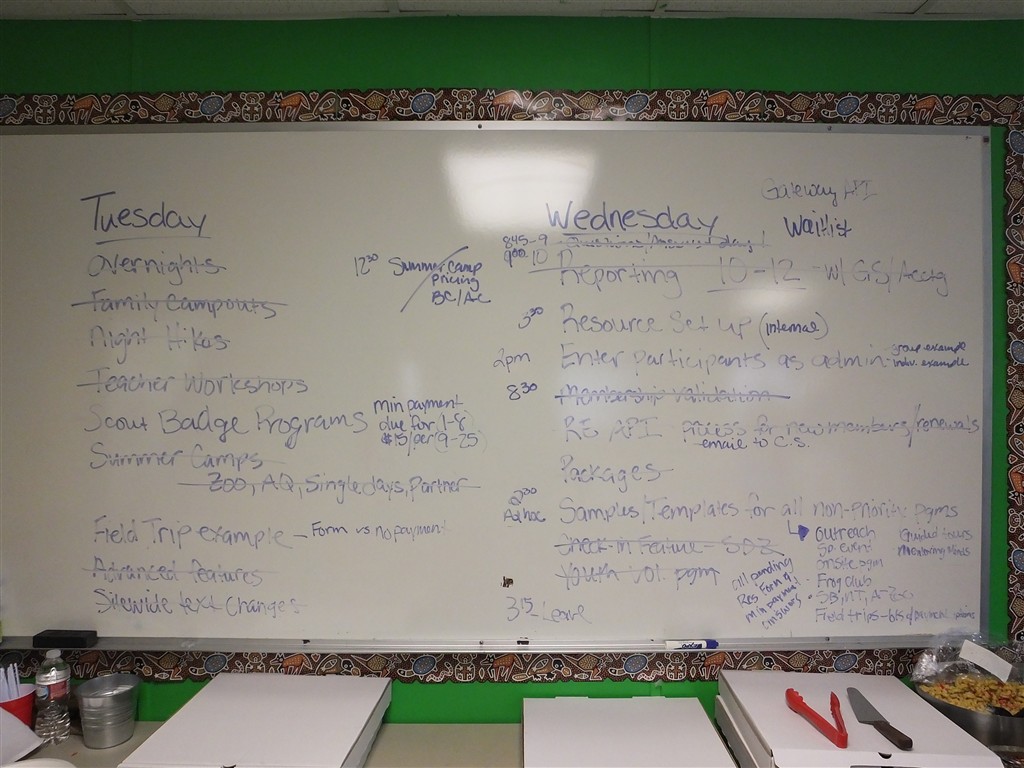 Tuesday
Overnights
Family Campouts
Night Hikes
Teacher Workshops
Scout Badge Programs
min payment
due for 1-8
$15/per 9-25
Summer Camps
Zoo, AQ, Single days, Partner
Field Trip example - Form vs no payment
Advanced features
Sitewide text changes
12:30 Summer Camp
Pricing
BC/AC
Gateway API
Waitlist
Wednesday
845-9
9:00-10
Reporting 10-12 - w/ GS/Acctg
3:30 Resource Set up (internal)
2pm Enter participants as admin - group example
indiv. example
8:30 Membership validation
RE API process for new members/renewals
email to C.S.
Packages
2:30
Ad hoc Samples/Templates for all non-Priority pgms
Outreach
Sp. event
onsite pgm
Frog club
Guided tours
Check-in Feature - SDZ
Youth vol. pgm
all pending
Res Form q's
min payment
Field trips -
3:15 - Leave